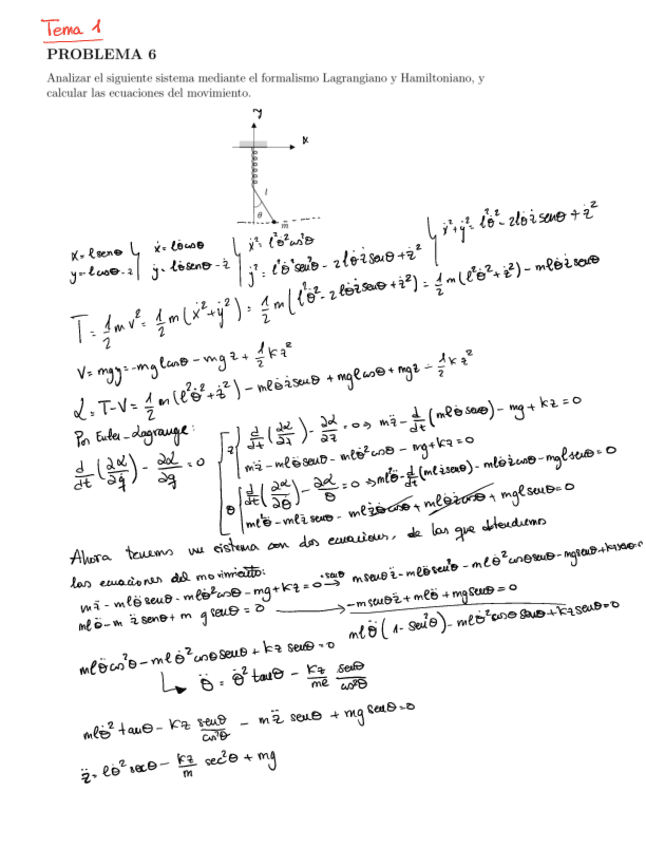 Tema 1
PROBLEMA 6
Analizar el siguiente sistema mediante el formalismo Lagrangiano y Hamiltoniano, y
calcular las ecuaciones del movimiento.
y
x
l
θ
m
x = l senθ
y = -l cosθ - z
ẋ = lθ̇ cosθ
ẏ = lθ̇ senθ - ż
ẋ² = l²θ̇² cos²θ
ẏ² = l²θ̇² sen²θ - 2lθ̇ż senθ + ż²
ẋ² + ẏ² = l²θ̇² - 2lθ̇ż senθ + ż²
T = 1/2 mv² = 1/2 m(ẋ² + ẏ²) = 1/2 m(l²θ̇² - 2lθ̇ż senθ + ż²) = 1/2 m(l²θ̇² + ż²) - mlθ̇ż senθ
V = mgy = -mgl cosθ - mgz + 1/2 kz²
L = T - V = 1/2 m(l²θ̇² + ż²) - mlθ̇ż senθ + mgl cosθ + mgz - 1/2 kz²
Por Euler-Lagrange:
d/dt (∂L/∂q̇) - ∂L/∂q = 0
z
d/dt (∂L/∂ż) - ∂L/∂z = 0 → mz̈ - d/dt (mlθ̇ senθ) - mg + kz = 0
mz̈ - mlθ̈ senθ - mlθ̇² cosθ - mg + kz = 0
θ
d/dt (∂L/∂θ̇) - ∂L/θ = 0 → ml²θ̈ - d/dt (mlż senθ) - mlθ̇ż cosθ - mgl senθ = 0
ml²θ̈ - mlz̈ senθ - mlżθ̇ cosθ + mlθ̇ż cosθ + mgl senθ = 0
Ahora tenemos un sistema con dos ecuaciones, de las que obtendremos
las ecuaciones del movimiento:
mz̈ - mlθ̈ senθ - mlθ̇² cosθ - mg + kz = 0 ·senθ → m senθ z̈ - mlθ̈ sen²θ - mlθ̇² cosθ senθ - mg senθ + kz senθ = 0
mlθ̈ - m z̈ senθ + m g senθ = 0 → -m senθ z̈ + mlθ̈ + mg senθ = 0
mlθ̈ (1 - sen²θ) - mlθ̇² cosθ senθ + kz senθ = 0
mlθ̈ cos²θ - mlθ̇² cosθ senθ + kz senθ = 0
θ̈ = θ̇² tanθ - kz/ml senθ/cos²θ
mlθ̇² tanθ - kz senθ/cos²θ - mz̈ senθ + mg senθ = 0
z̈ = lθ̇² secθ - kz/m sec²θ + mg